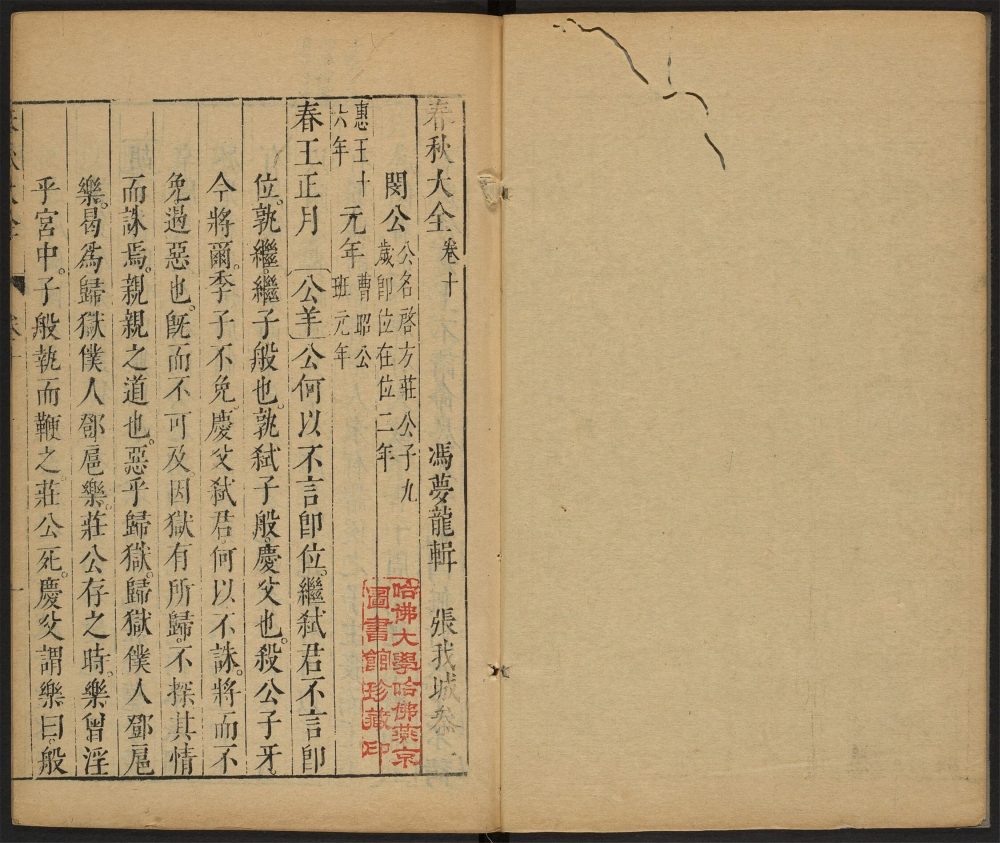 春秋大全 卷十 馮夢龍輯 張我城參
閔公 公名啓方莊公子九
歲卽位在位二年
惠王十
六年 元年 曹昭公
班元年
春王正月 〔公羊〕公何以不言卽位。繼弒君不言卽
位。孰繼。繼子般也。孰弒子般。慶父也。殺公子牙。
今將爾。季子不免。慶父弒君。何以不誅。將而不
免過惡也。旣而不可及因獄有所歸。不探其情
而誅焉。親親之道也。惡乎歸獄。歸獄僕人鄧扈
樂。曷爲歸獄僕人鄧扈樂。莊公存之時。樂曾淫
乎宮中。子般執而鞭之。莊公死。慶父謂樂曰。般
哈佛大學哈佛燕京
圖書館珍藏印